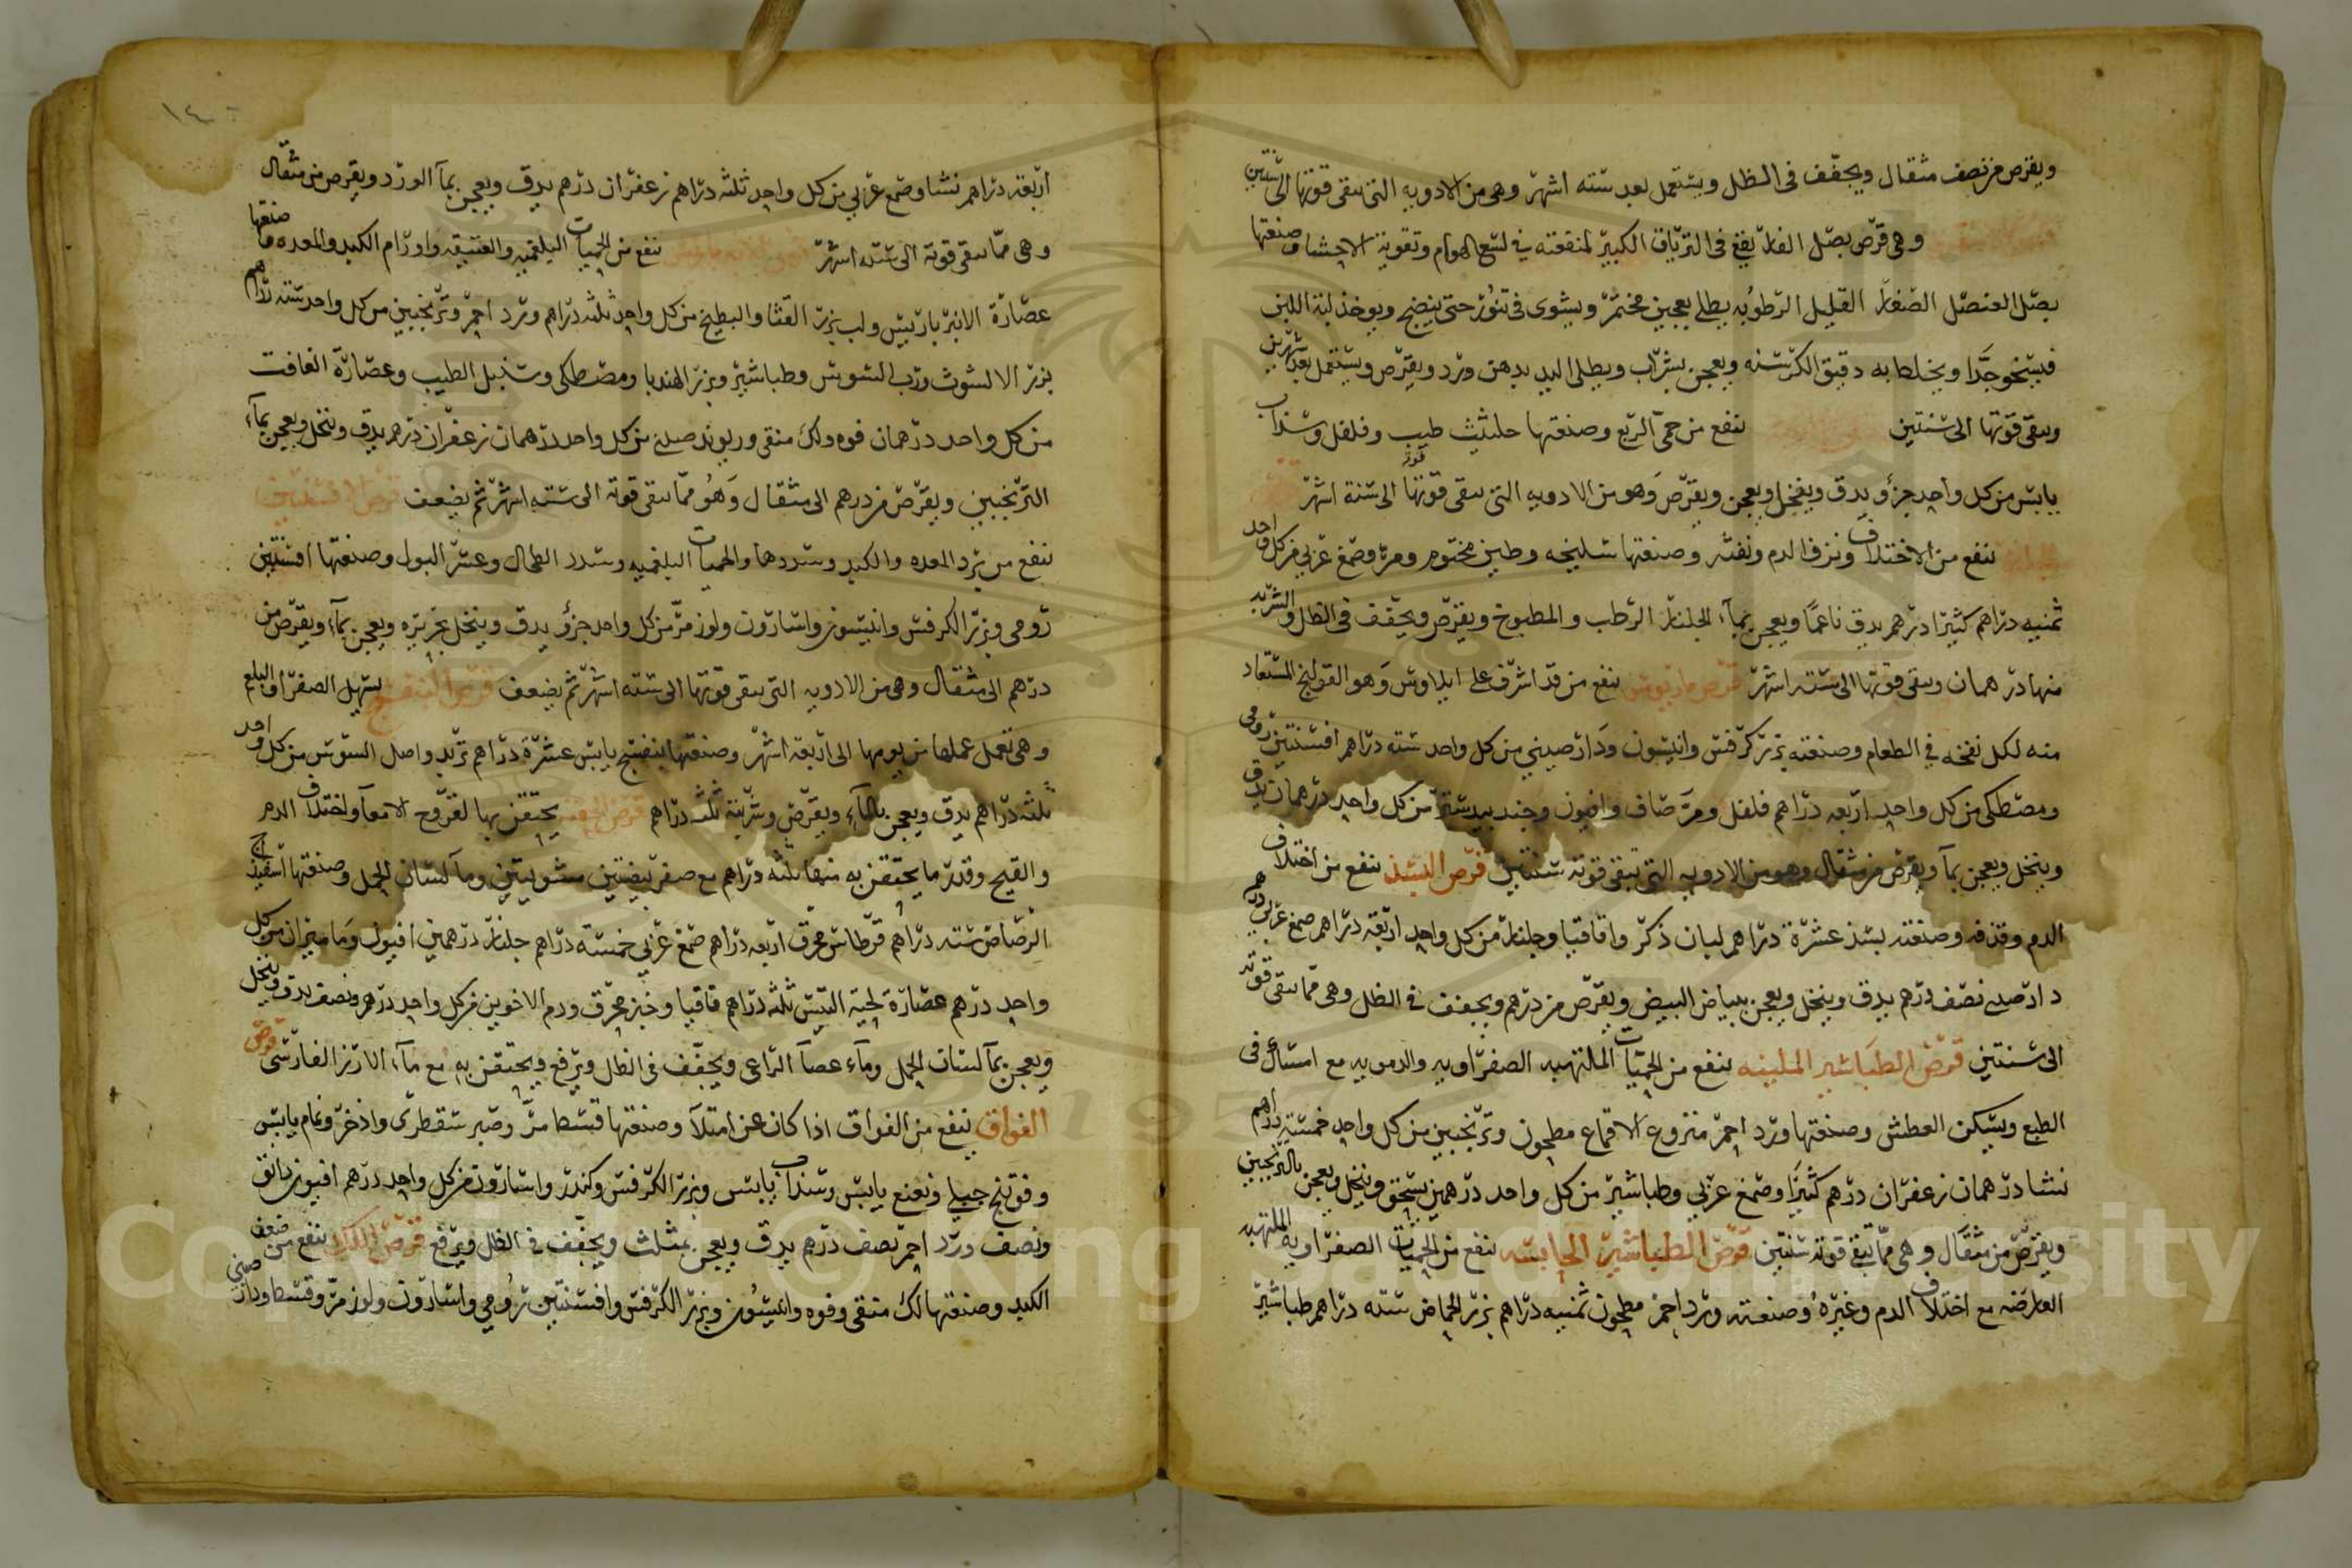 ويقرص من نصف مثقال ويجفف فى الظل ويستعمل بعد سته اشهر وهى من الادويه التى تبقى قوتها الى سنتين
وهى قرص بصل الفار يقع فى الترياق الكبير لمنفعته فى لسع الهوام وتقوية الاحشا وصنعتها
بصل العنصل الصغار القليل الرطوبه يطلى بعجين مختمر ويشوى فى تنور حتى ينضج ويوخذ لبه اللين
فيسحق جدا ويخلط به دقيق الكرسنه ويعجن بشراب ويطلى اليد بدهن ورد ويقرص ويستعمل بعد شهرين
وتبقى قوتها الى سنتين نفع من حمى الربع وصنعتها حلتيت طيب وفلفل وسذاب
يابس من كل واحد جزؤ يدق وينخل ويعجن ويقرص وهو من الادويه التى تبقى قوتها الى ستة اشهر
ينفع من الاختلاف ونزف الدم ونفثه وصنعتها سليخه وطين مختوم ومر وصمغ عربي من كل واحد
ثمنيه دراهم كثيرا درهم يدق ناعما ويعجن بمآء الجلنار الرطب والمطبوخ ويقرص ويجفف فى الظل والشربه
منها درهمان وتبقى قوتها الى سته اشهر قرص مارنيوش ينفع من قد اشرف على ايلاوس وهو القولنج المستعاد
منه لكل نفخه في الطعام وصنعته بزر كرفس وانيسون ودارصيني من كل واحد سته دراهم افسنتين رومى
ومصطكى من كل واحد اربعه دراهم فلفل ومر صاف وافيون وجندبيدستر من كل واحد درهمان يدق
وينخل ويعجن بمآ ويقرص من مثقال وهو من الادويه التى تبقى قوته سنتين قرص البسذ ينفع من اختلاف
الدم وقذفه وصنعته بسذ عشرة دراهم لبان ذكر واقاقيا وجلنار من كل واحد اربعة دراهم صمغ عربي درهم
دارصينى نصف درهم يدق وينخل ويعجن ببياض البيض ويقرص من درهم ويجفف فى الظل وهى مما تبقى قوته
الى سنتين قرص الطباشير الملينه ينفع من الحميات الملتهبه الصفراويه والدمويه مع امساك فى
الطبع ويسكن العطش وصنعتها ورد احمر منزوع الاقماع مطحون وترنجبين من كل واحد خمسة دراهم
نشا درهمان زعفران درهم كثيرا وصمغ عربي وطباشير من كل واحد درهمين يسحق وينخل ويعجن بالترنجبين
ويقرص من مثقال وهى مما تبقى قوته سنتين قرص الطباشير الحابسه ينفع من الحميات الصفراويه الملتهبه
العارضه مع اختلاف الدم وغيره وصنعته ورد احمر مطحون ثمنيه دراهم بزر الحماض سته دراهم طباشير
١٤٠
اربعه دراهم نشا وصمغ عربي من كل واحد ثلثه دراهم زعفران درهم يدق ويعجن بمآ الورد ويقرص من مثقال
وهى مما تبقى قوته الى سته اشهر ينفع من الحميات البلغميه والعتيقه واورام الكبد والمعده وصنعتها
عصارة الانبرباريس ولب بزر القثا والبطيخ من كل واحد ثلثه دراهم ورد احمر وترنجبين من كل واحد سته دراهم
بزر الاكشوث ورب السوس وطباشير وبزر الهندبا ومصطكى وسنبل الطيب وعصارة الغافت
من كل واحد درهمان فوه ولك منقى وريوند صينى من كل واحد درهمان زعفران درهم يدق وينخل ويعجن بمآء
الترنجبين ويقرص من درهم الى مثقال وهو مما تبقى قوته الى سته اشهر ثم يضعف قرص الافسنتين
ينفع من برد المعده والكبد وسددها والحميات البلغميه وسدد الطحال وعسر البول وصنعتها افسنتين
رومى وبزر الكرفس وانيسون واسارون ولوز مر من كل واحد جزؤ يدق وينخل بحريره ويعجن بمآء ويقرص من
درهم الى مثقال وهى من الادويه التى تبقى قوتها الى سته اشهر ثم يضعف قرص البنفسج يسهل الصفرا والبلغم
وهى تعمل عملها من يومها الى اربعة اشهر وصنعتها بنفسج يابس عشرة دراهم تربد واصل السوس من كل واحد
ثلثه دراهم يدق ويعجن بالمآء ويقرص وشربته ثلثه دراهم قرص الحقنه يحتقن بها لقروح الامعآ واختلاف الدم
والقيح وقدر ما يحتقن به منها ثلثه دراهم مع صفر بيضتين مشويتين ومآ لسان الحمل وصنعتها اسفيذاج
الرصاص سته دراهم قرطاس محرق اربعه دراهم صمغ عربي خمسة دراهم جلنار درهمين افيون وماميران من كل
واحد درهم عصارة لحية التيس ثلثه دراهم قاقيا وخبز محرق ودم الاخوين من كل واحد درهم ونصف يدق وينخل
ويعجن بمآ لسان الحمل ومآء عصا الراعى ويجفف فى الظل ويرفع ويحتقن به مع مآء الارز الفارسى قرص
الفواق ينفع من الفواق اذا كان عن امتلآ وصنعتها قسط مر وصبر سقطرى واذخر ونمام يابس
وفوتنج جبلي ونعنع يابس وسذاب يابس وبزر الكرفس وكندر واسارون من كل واحد درهم افيون دانق
ونصف ورد احمر نصف درهم يدق ويعجن بمثلث ويجفف فى الظل ويرفع قرص اللك ينفع من ضعف
الكبد وصنعتها لك منقى وفوه وانيسون وبزر الكرفس وافسنتين رومي واسارون ولوز مر وقسط ودار صيني
Copyright © King Saud University